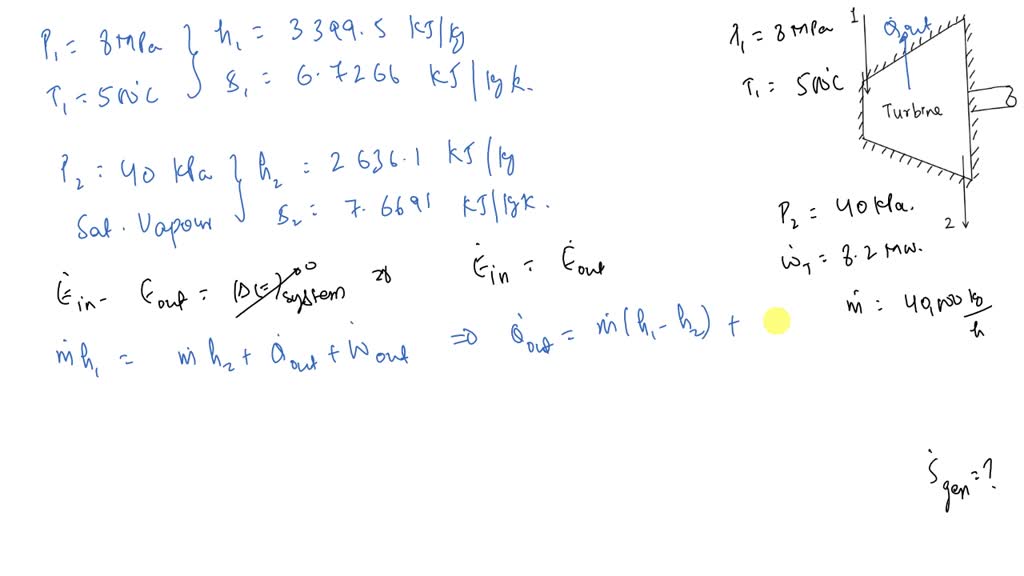 P₁ = 8 MPa } h₁ = 3399.5 KJ/kg
T₁ = 500°C } s₁ = 6.7266 KJ/kgk.
P₂ = 40 kPa } h₂ = 2636.1 KJ/kg
Sat. Vapour } s₂ = 7.6691 KJ/kgk.
Ėin - Ėout = (ΔĖ)system →0 ⇒ Ėin = Ėout
ṁh₁ = ṁh₂ + Q̇out + Ẇout ⇒ Q̇out = ṁ(h₁ - h₂) +
1
Q̇out
P₁ = 8 MPa
T₁ = 500°C
Turbine
2
P₂ = 40 kPa.
ẆT = 8.2 MW.
ṁ = 40,000 kg/h
Ṡgen = ?